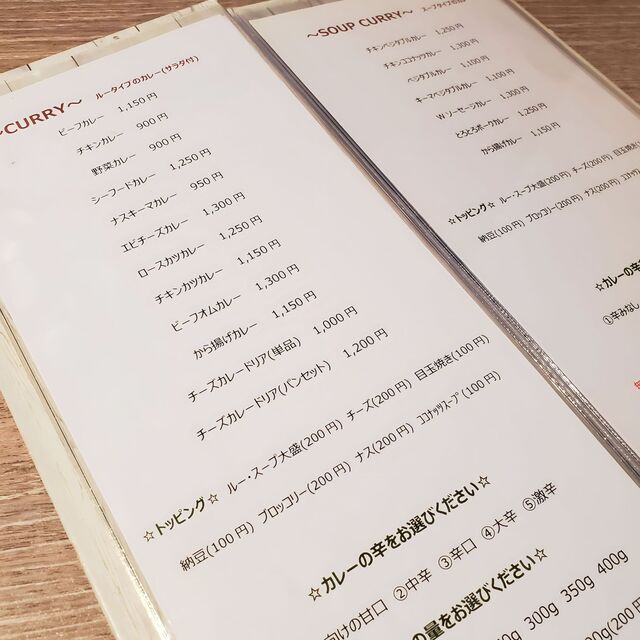 ~CURRY~ ルータイプのカレー(サラダ付)
ビーフカレー 1,150円
チキンカレー 900円
野菜カレー 900円
シーフードカレー 1,250円
ナスキーマカレー 950円
エビチーズカレー 1,300円
ロースカツカレー 1,250円
チキンカツカレー 1,150円
ビーフオムカレー 1,300円
から揚げカレー 1,150円
チーズカレードリア(単品) 1,000円
チーズカレードリア(パンセット) 1,200円
☆トッピング☆ ルー・スープ大盛(200円) チーズ(200円) 目玉焼き(100円)
納豆(100円) ブロッコリー(200円) ナス(200円) ココナッツスープ(100円)
☆カレーの辛をお選びください☆
向けの甘口 ②中辛 ③辛口 ④大辛 ⑤激辛
の量をお選びください☆
300g 350g 400g
(200円)
~SOUP CURRY~ スープタイプのカレ
チキンベジタブルカレー 1,250円
チキンココナッツカレー 1,300円
ベジタブルカレー 1,100円
キーマベジタブルカレー 1,100円
Wソーセージカレー 1,300円
とろとろポークカレー 1,250円
から揚げカレー 1,150円
☆トッピング☆ ルー・スープ大盛(200円) チーズ(200円) 目玉焼き(
納豆(100円) ブロッコリー(200円) ナス(200円) ココナッツ
☆カレーの辛
①辛みなし